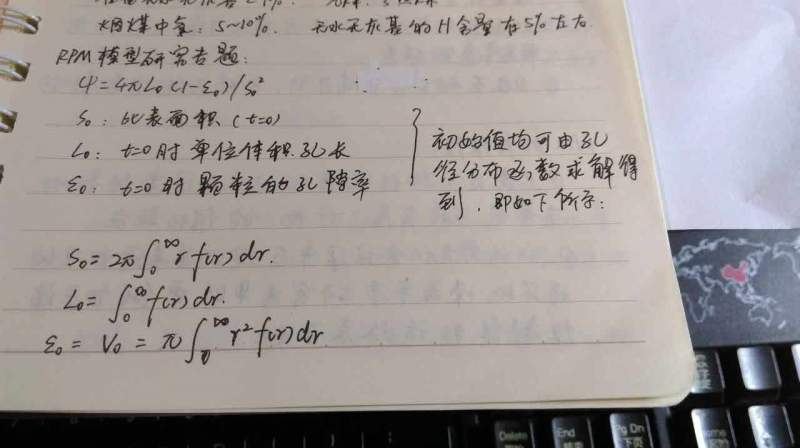 煤中氢：5~10%. 无水无灰基的H含量在5%左右.
RPM模型研究专题:
Ψ=4πL₀(1-ε₀)/S₀²
S₀: 比表面积(t=0)
L₀: t=0时单位体积孔长
ε₀: t=0时颗粒的孔隙率
初始值均可由孔
径分布函数求解得
到, 即如下所示:
S₀=2π∫₀^∞ r f(r) dr.
L₀=∫₀^∞ f(r) dr.
ε₀ = V₀ = π∫₀^∞ r² f(r) dr
Delete
End
Pg Dn
下页
Home